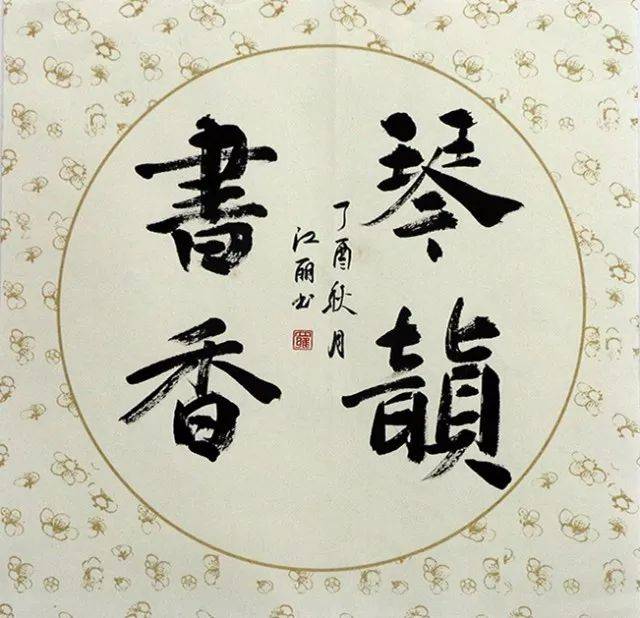 琴韻
書香
丁酉秋月
江丽书